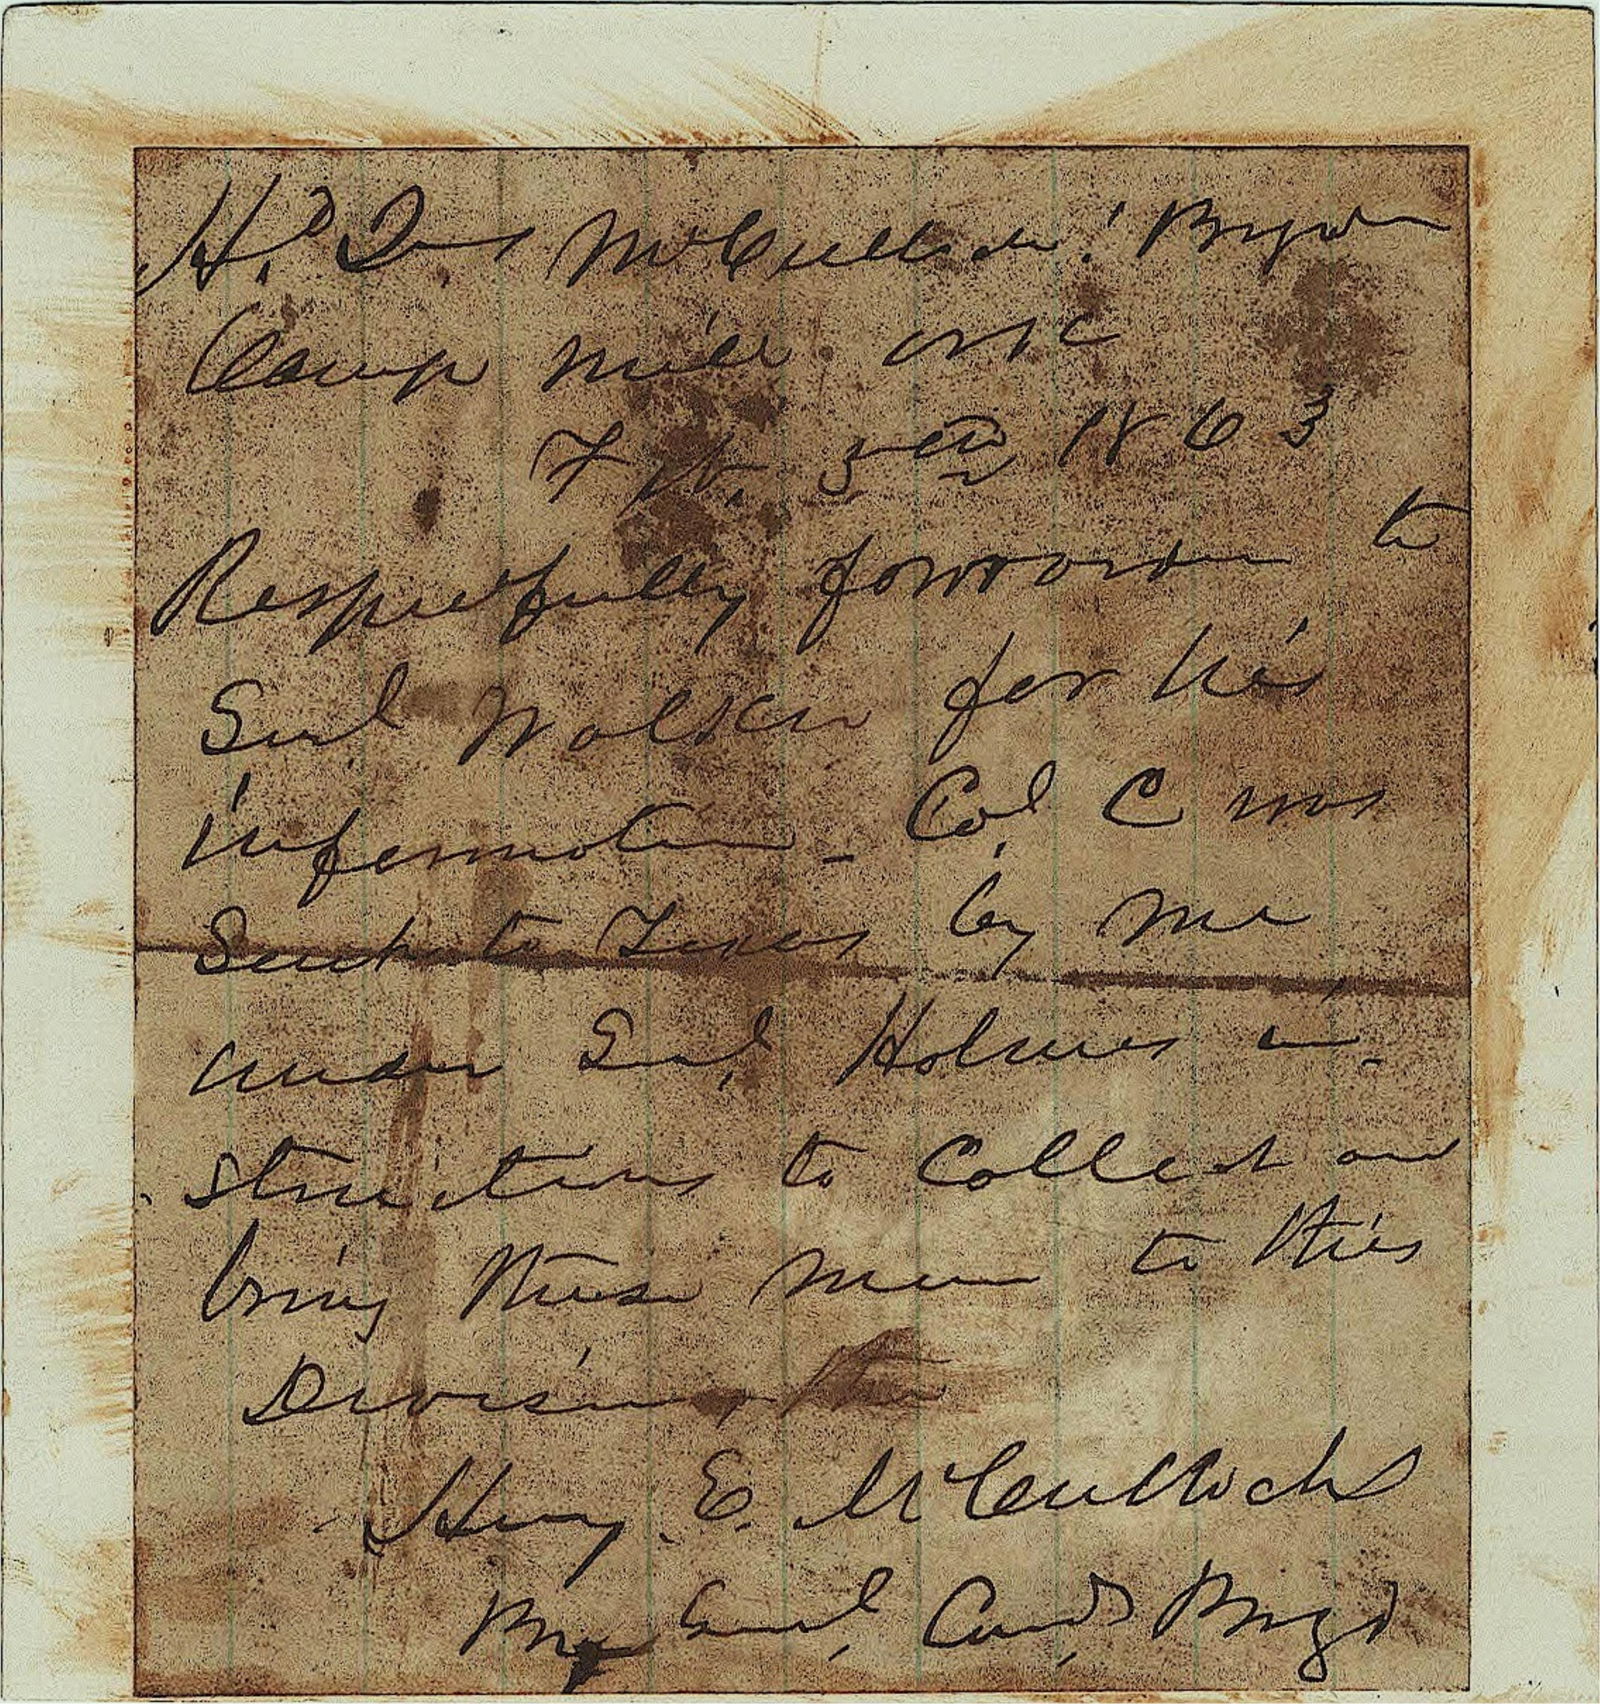 Hd Qrs McCulloch's Brigde
Camp Mills Ark
Feb. 5th 1863
Respectfully forwarded to
Genl Walker for his
information – Col C was
Sent to Texas by me
under Genl Holmes in-
structions to Collect and
bring these men to this
Division
Henry E. McCulloch
Brig Genl, Comdg Brigd